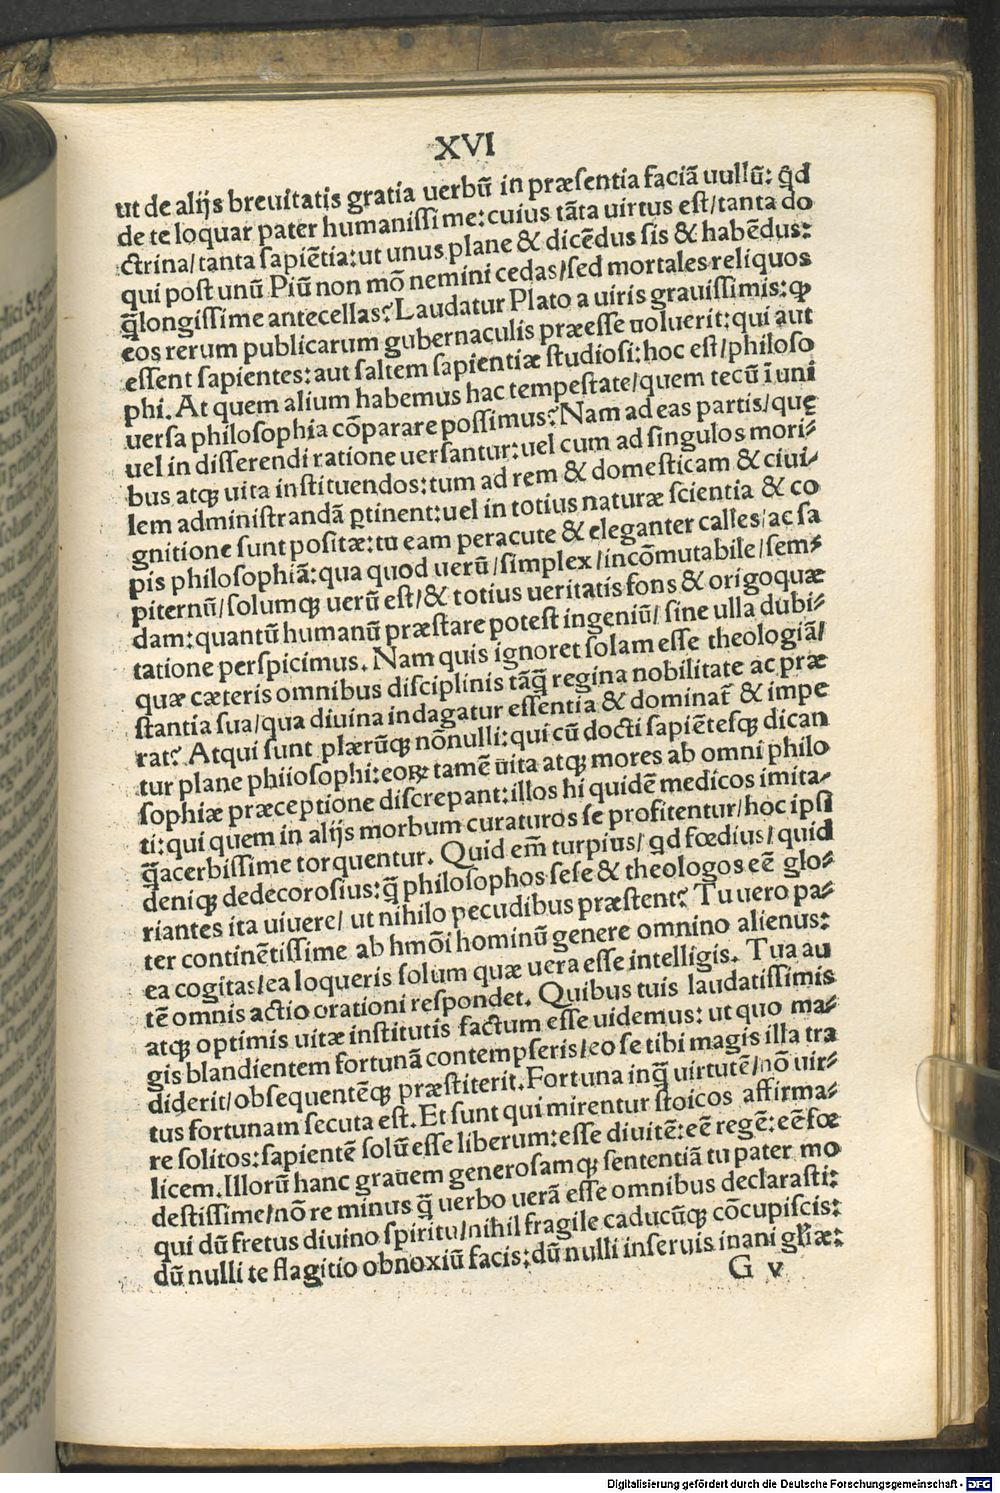 XVI
ut de alijs breuitatis gratia uerbū in præsentia faciā uullū: qd
de te loquar pater humanissime: cuius tāta uirtus est/tanta do
ctrina/tanta sapiētia: ut unus plane & dicēdus sis & habēdus:
qui post unū Piū non mō nemini cedas/sed mortales reliquos
q̄longissime antecellas? Laudatur Plato a uiris grauissimis: ꝙ
eos rerum publicarum gubernaculis præesse uoluerit: qui aut
essent sapientes: aut saltem sapientiæ studiosi: hoc est/philoso
phi. At quem alium habemus hac tempestate/quem tecū ī uni
uersa philosophia cōparare possimus? Nam ad eas partis/quę
uel in disserendi ratione uersantur: uel cum ad singulos mori⸗
bus atqꝫ uita instituendos: tum ad rem & domesticam & ciui⸗
lem administrandā ꝑtinent: uel in totius naturæ scientia & co
gnitione sunt positæ: tu eam peracute & eleganter calles/ac sa
pis philosophiā: qua quod uerū/simplex/incōmutabile/sem⸗
piternū/solumqꝫ uerū est/& totius ueritatis fons & origo quæ
dam: quantū humanū præstare potest ingeniū/ sine ulla dubi⸗
tatione perspicimus. Nam quis ignoret solam esse theologiā/
quæ cæteris omnibus disciplinis tāq̄ regina nobilitate ac præ
stantia sua/qua diuina indagatur essentia & dominat̄ & impe
rat? Atqui sunt plærūqꝫ nōnulli: qui cū docti sapiētesqꝫ dican
tur plane phiiosophi: eoꝝ tamē uita atqꝫ mores ab omni philo
sophiæ præceptione discrepant: illos hi quidē medicos imita⸗
ti: qui quem in alijs morbum curaturos se profitentur/hoc ipsi
q̄acerbissime torquentur. Quid em̄ turpius/ qd fœdius/ quid
deniqꝫ dedecorosius: q̄ philosophos sese & theologos eē glo⸗
riantes ita uiuere/ ut nihilo pecudibus præstent? Tu uero pa⸗
ter continētissime ab hmōi hominū genere omnino alienus:
ea cogitas/ea loqueris solum quæ uera esse intelligis. Tua au
tē omnis actio orationi respondet. Quibus tuis laudatissimis
atqꝫ optimis uitæ institutis factum esse uidemus: ut quo ma⸗
gis blandientem fortunā contempseris/eo se tibi magis illa tra
diderit/obsequentēqꝫ præstiterit. Fortuna inq̄ uirtutē/nō uir⸗
tus fortunam secuta est. Et sunt qui mirentur stoicos affirma⸗
re solitos: sapientē solū esse liberum: esse diuitē: eē regē: eē fœ
licem. Illorū hanc grauem generosamqꝫ sententiā tu pater mo
destissime/nō re minus q̄ uerbo uerā esse omnibus declarasti:
qui dū fretus diuino spiritu/nihil fragile caducūqꝫ cōcupiscis:
dū nulli te flagitio obnoxiū facis: dū nulli inseruis inani gl̄iæ:
G v
Digitalisierung gefördert durch die Deutsche Forschungsgemeinschaft - DFG